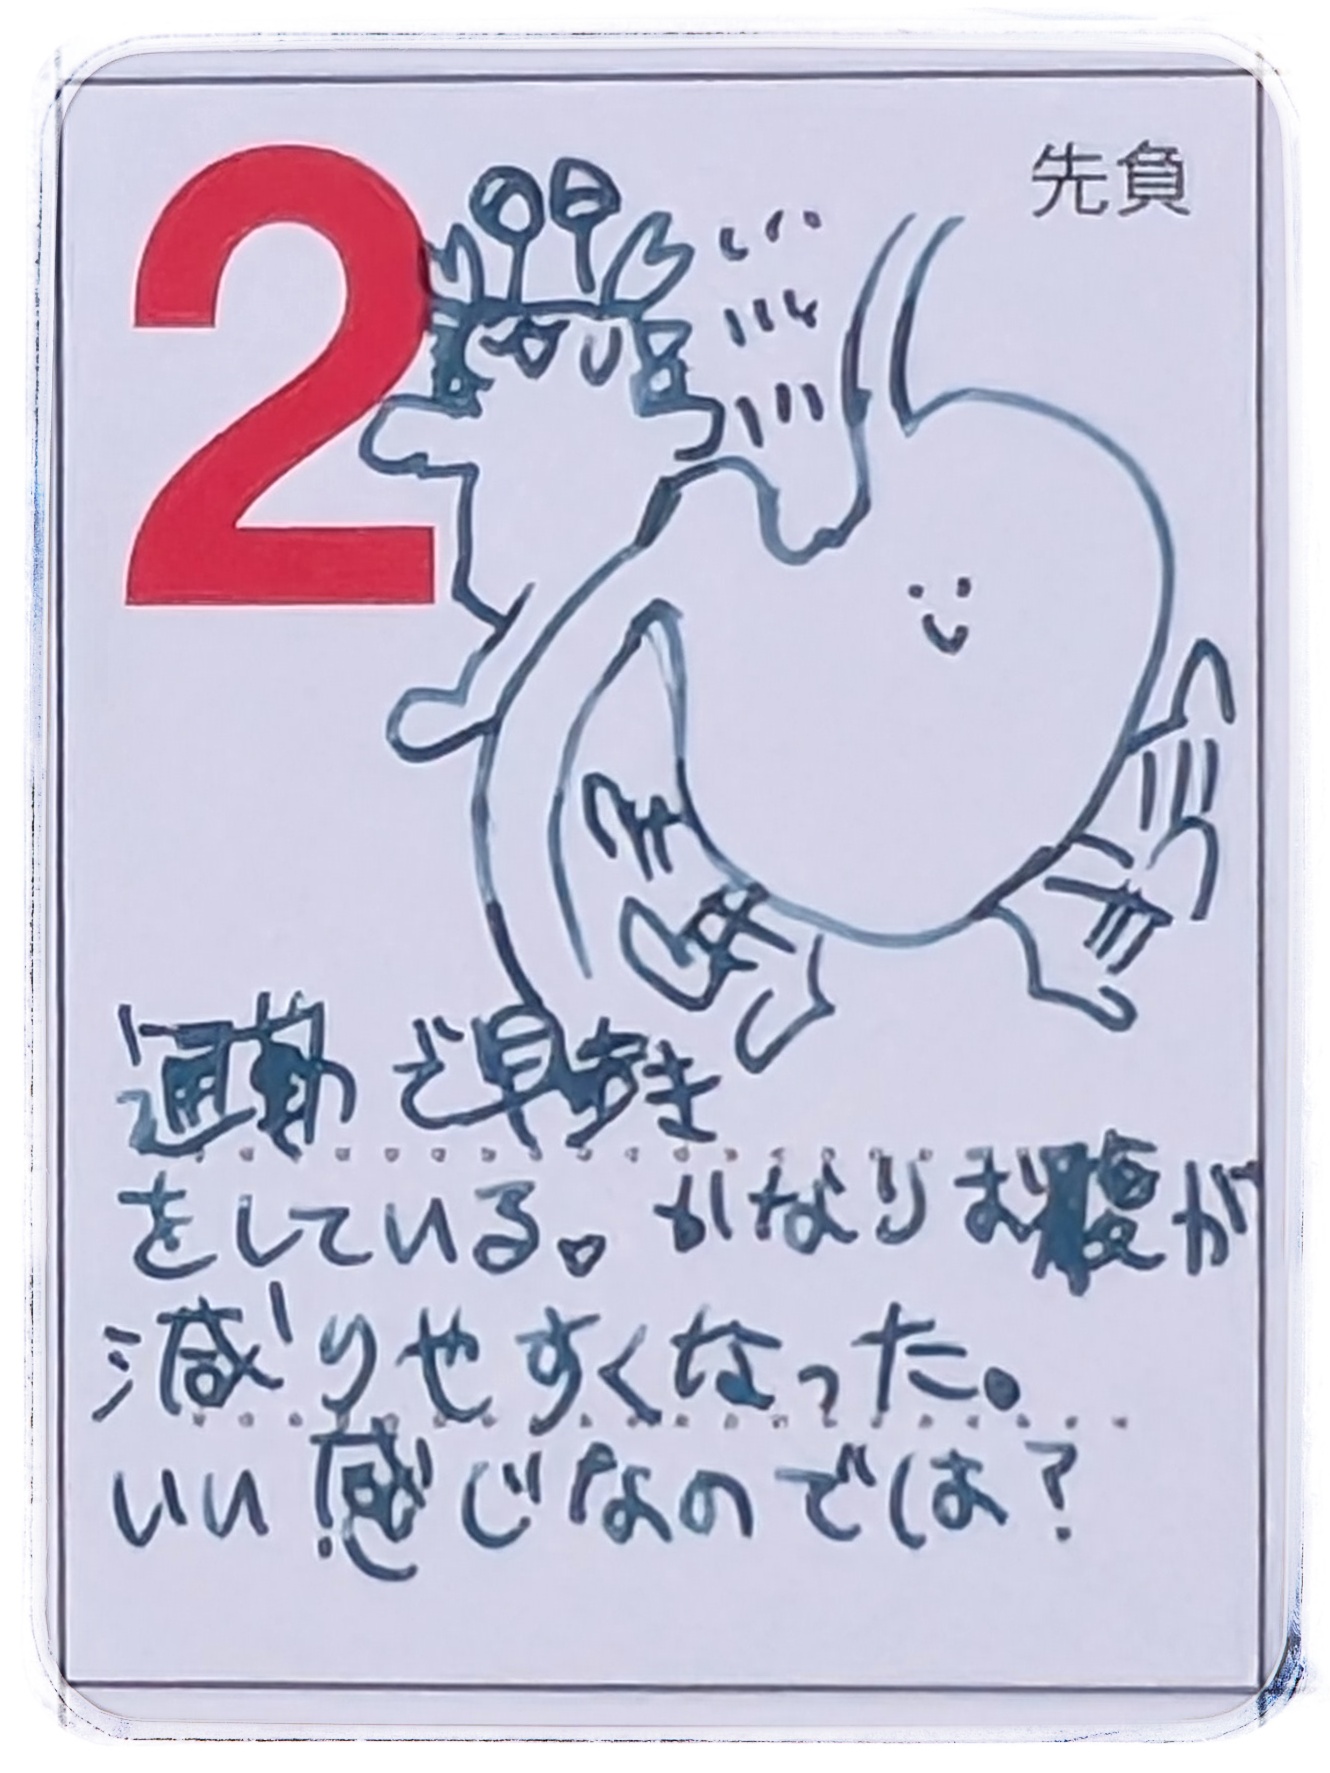 2
先負
通勤で早歩き
をしている。かなりお腹が
減りやすくなった。
いい感じなのでは?